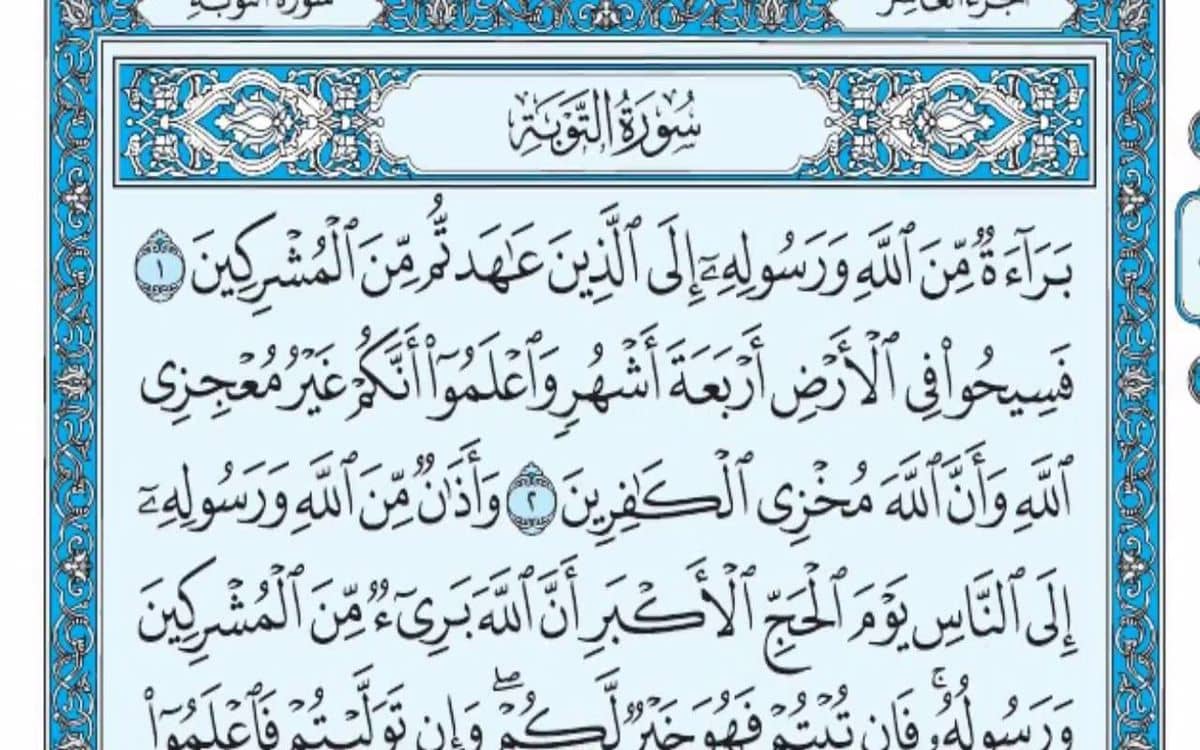 الجزء العاشر
سورة التوبة
سُورَةُ التَّوْبَةِ
بَرَآءَةٌ مِّنَ ٱللَّهِ وَرَسُولِهِۦٓ إِلَى ٱلَّذِينَ عَٰهَدتُّم مِّنَ ٱلْمُشْرِكِينَ ١
فَسِيحُوا۟ فِى ٱلْأَرْضِ أَرْبَعَةَ أَشْهُرٍ وَٱعْلَمُوٓا۟ أَنَّكُمْ غَيْرُ مُعْجِزِى
ٱللَّهِ وَأَنَّ ٱللَّهَ مُخْزِى ٱلْكَٰفِرِينَ ٢ وَأَذَٰنٌ مِّنَ ٱللَّهِ وَرَسُولِهِۦٓ
إِلَى ٱلنَّاسِ يَوْمَ ٱلْحَجِّ ٱلْأَكْبَرِ أَنَّ ٱللَّهَ بَرِىٓءٌ مِّنَ ٱلْمُشْرِكِينَ
وَرَسُولُهُۥ ۚ فَإِن تُبْتُمْ فَهُوَ خَيْرٌ لَّكُمْ ۖ وَإِن تَوَلَّيْتُمْ فَٱعْلَمُوٓا۟